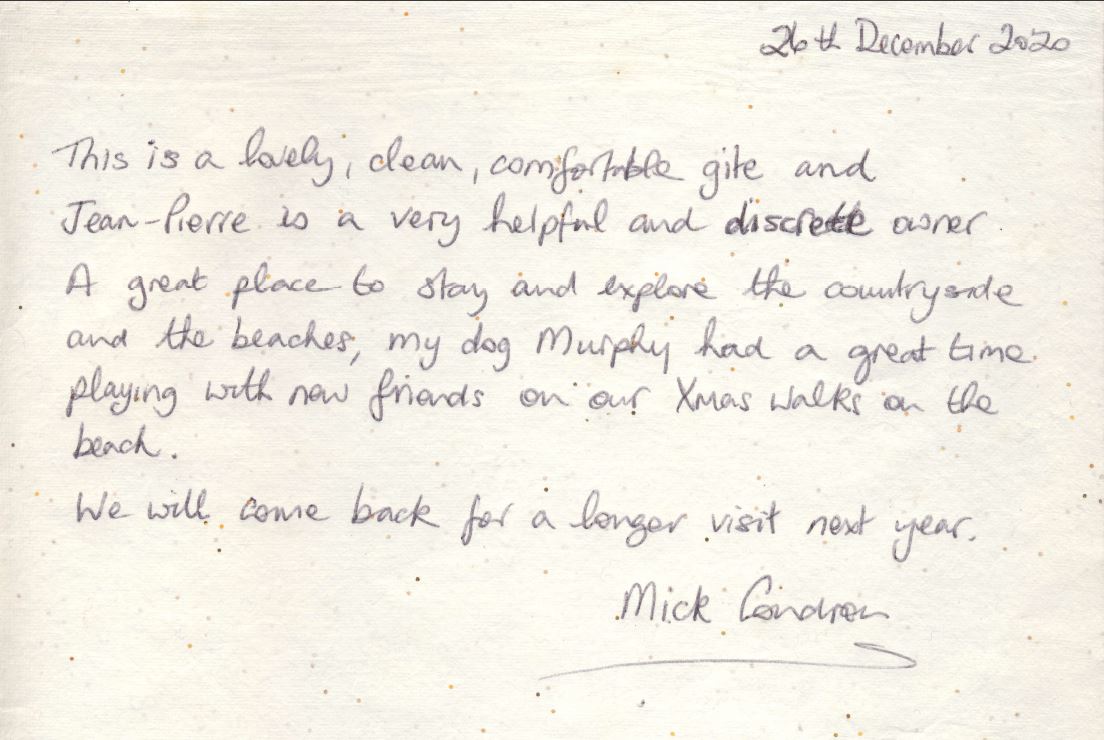 26th December 2020
This is a lovely, clean, comfortable gite and
Jean-Pierre is a very helpful and discrete owner.
A great place to stay and explore the countryside
and the beaches, my dog Murphy had a great time
playing with new friends on our Xmas walks on the
beach.
We will come back for a longer visit next year.
Mick Condron